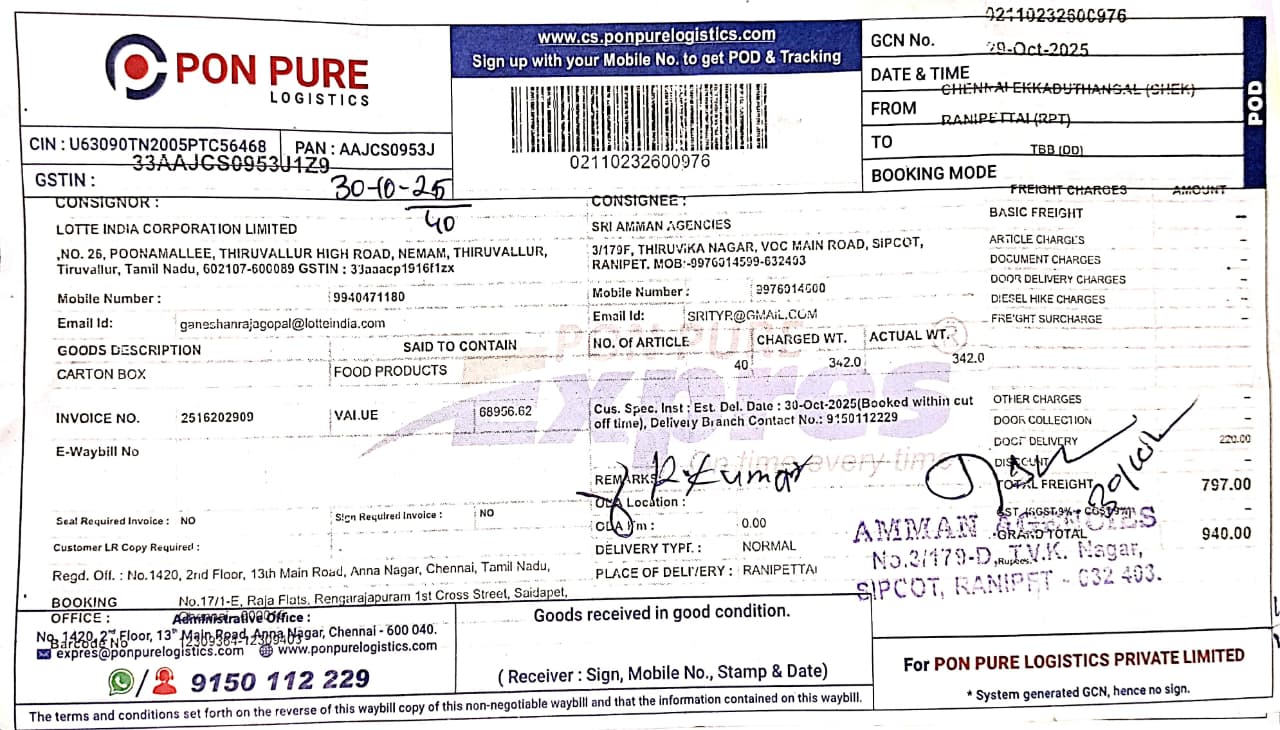 PON PURE
LOGISTICS
www.cs.ponpurelogistics.com
Sign up with your Mobile No. to get POD & Tracking
02110232600976
GCN No. 02110232600976
DATE & TIME 29-Oct-2025
FROM CHENNAI EKKADUTHANGAL (CHEK)
TO RANIPETTAI (RPT)
BOOKING MODE TBB (DD)
POD
CIN : U63090TN2005PTC56468 PAN : AAJCS0953J
GSTIN : 33AAJCS0953J1Z9
30-10-25
40
CONSIGNOR :
LOTTE INDIA CORPORATION LIMITED
,NO. 26, POONAMALLEE, THIRUVALLUR HIGH ROAD, NEMAM, THIRUVALLUR,
Tiruvallur, Tamil Nadu, 602107-600089 GSTIN : 33aaacp1916f1zx
Mobile Number : 9940471180
Email Id: ganeshanrajagopal@lotteindia.com
CONSIGNEE :
SRI AMMAN AGENCIES
3/179F, THIRUVIKA NAGAR, VOC MAIN ROAD, SIPCOT,
RANIPET. MOB:-9976014599-632403
Mobile Number :
Email Id: SRITYR@GMAIL.COM
GOODS DESCRIPTION SAID TO CONTAIN NO. Of ARTICLE CHARGED WT. ACTUAL WT.
CARTON BOX FOOD PRODUCTS 40 342.0 342.0
PON PURE
Expres
On time every time
INVOICE NO. 2516202909 VALUE 68956.62
Cus. Spec. Inst : Est. Del. Date : 30-Oct-2025(Booked within cut
off time), Delivery Branch Contact No.: 9150112229
E-Waybill No
REMARKS
R Kumar
ODA Location :
Seal Required Invoice : NO Sign Required Invoice : NO
ODA Km : 0.00
Customer LR Copy Required : .
DELIVERY TYPE : NORMAL
PLACE OF DELIVERY : RANIPETTAI
FREIGHT CHARGES AMOUNT
BASIC FREIGHT -
ARTICLE CHARGES -
DOCUMENT CHARGES -
DOOR DELIVERY CHARGES -
DIESEL HIKE CHARGES -
FREIGHT SURCHARGE -
OTHER CHARGES -
DOOR COLLECTION -
DOOR DELIVERY 220.00
DISCOUNT -
TOTAL FREIGHT 797.00
GRAND TOTAL 940.00
AMMAN AGENCIES
No.3/179-D, T.V.K. Nagar,
SIPCOT, RANIPET - 632 403.
Regd. Off. : No.1420, 2nd Floor, 13th Main Road, Anna Nagar, Chennai, Tamil Nadu,
BOOKING OFFICE : No.17/1-E, Raja Flats, Rengarajapuram 1st Cross Street, Saidapet,
Barcode No
Administrative Office :
No. 1420, 2nd Floor, 13th Main Road, Anna Nagar, Chennai - 600 040.
expres@ponpurelogistics.com www.ponpurelogistics.com
9150 112 229
Goods received in good condition.
( Receiver : Sign, Mobile No., Stamp & Date)
For PON PURE LOGISTICS PRIVATE LIMITED
* System generated GCN, hence no sign.
The terms and conditions set forth on the reverse of this waybill copy of this non-negotiable waybill and that the information contained on this waybill.